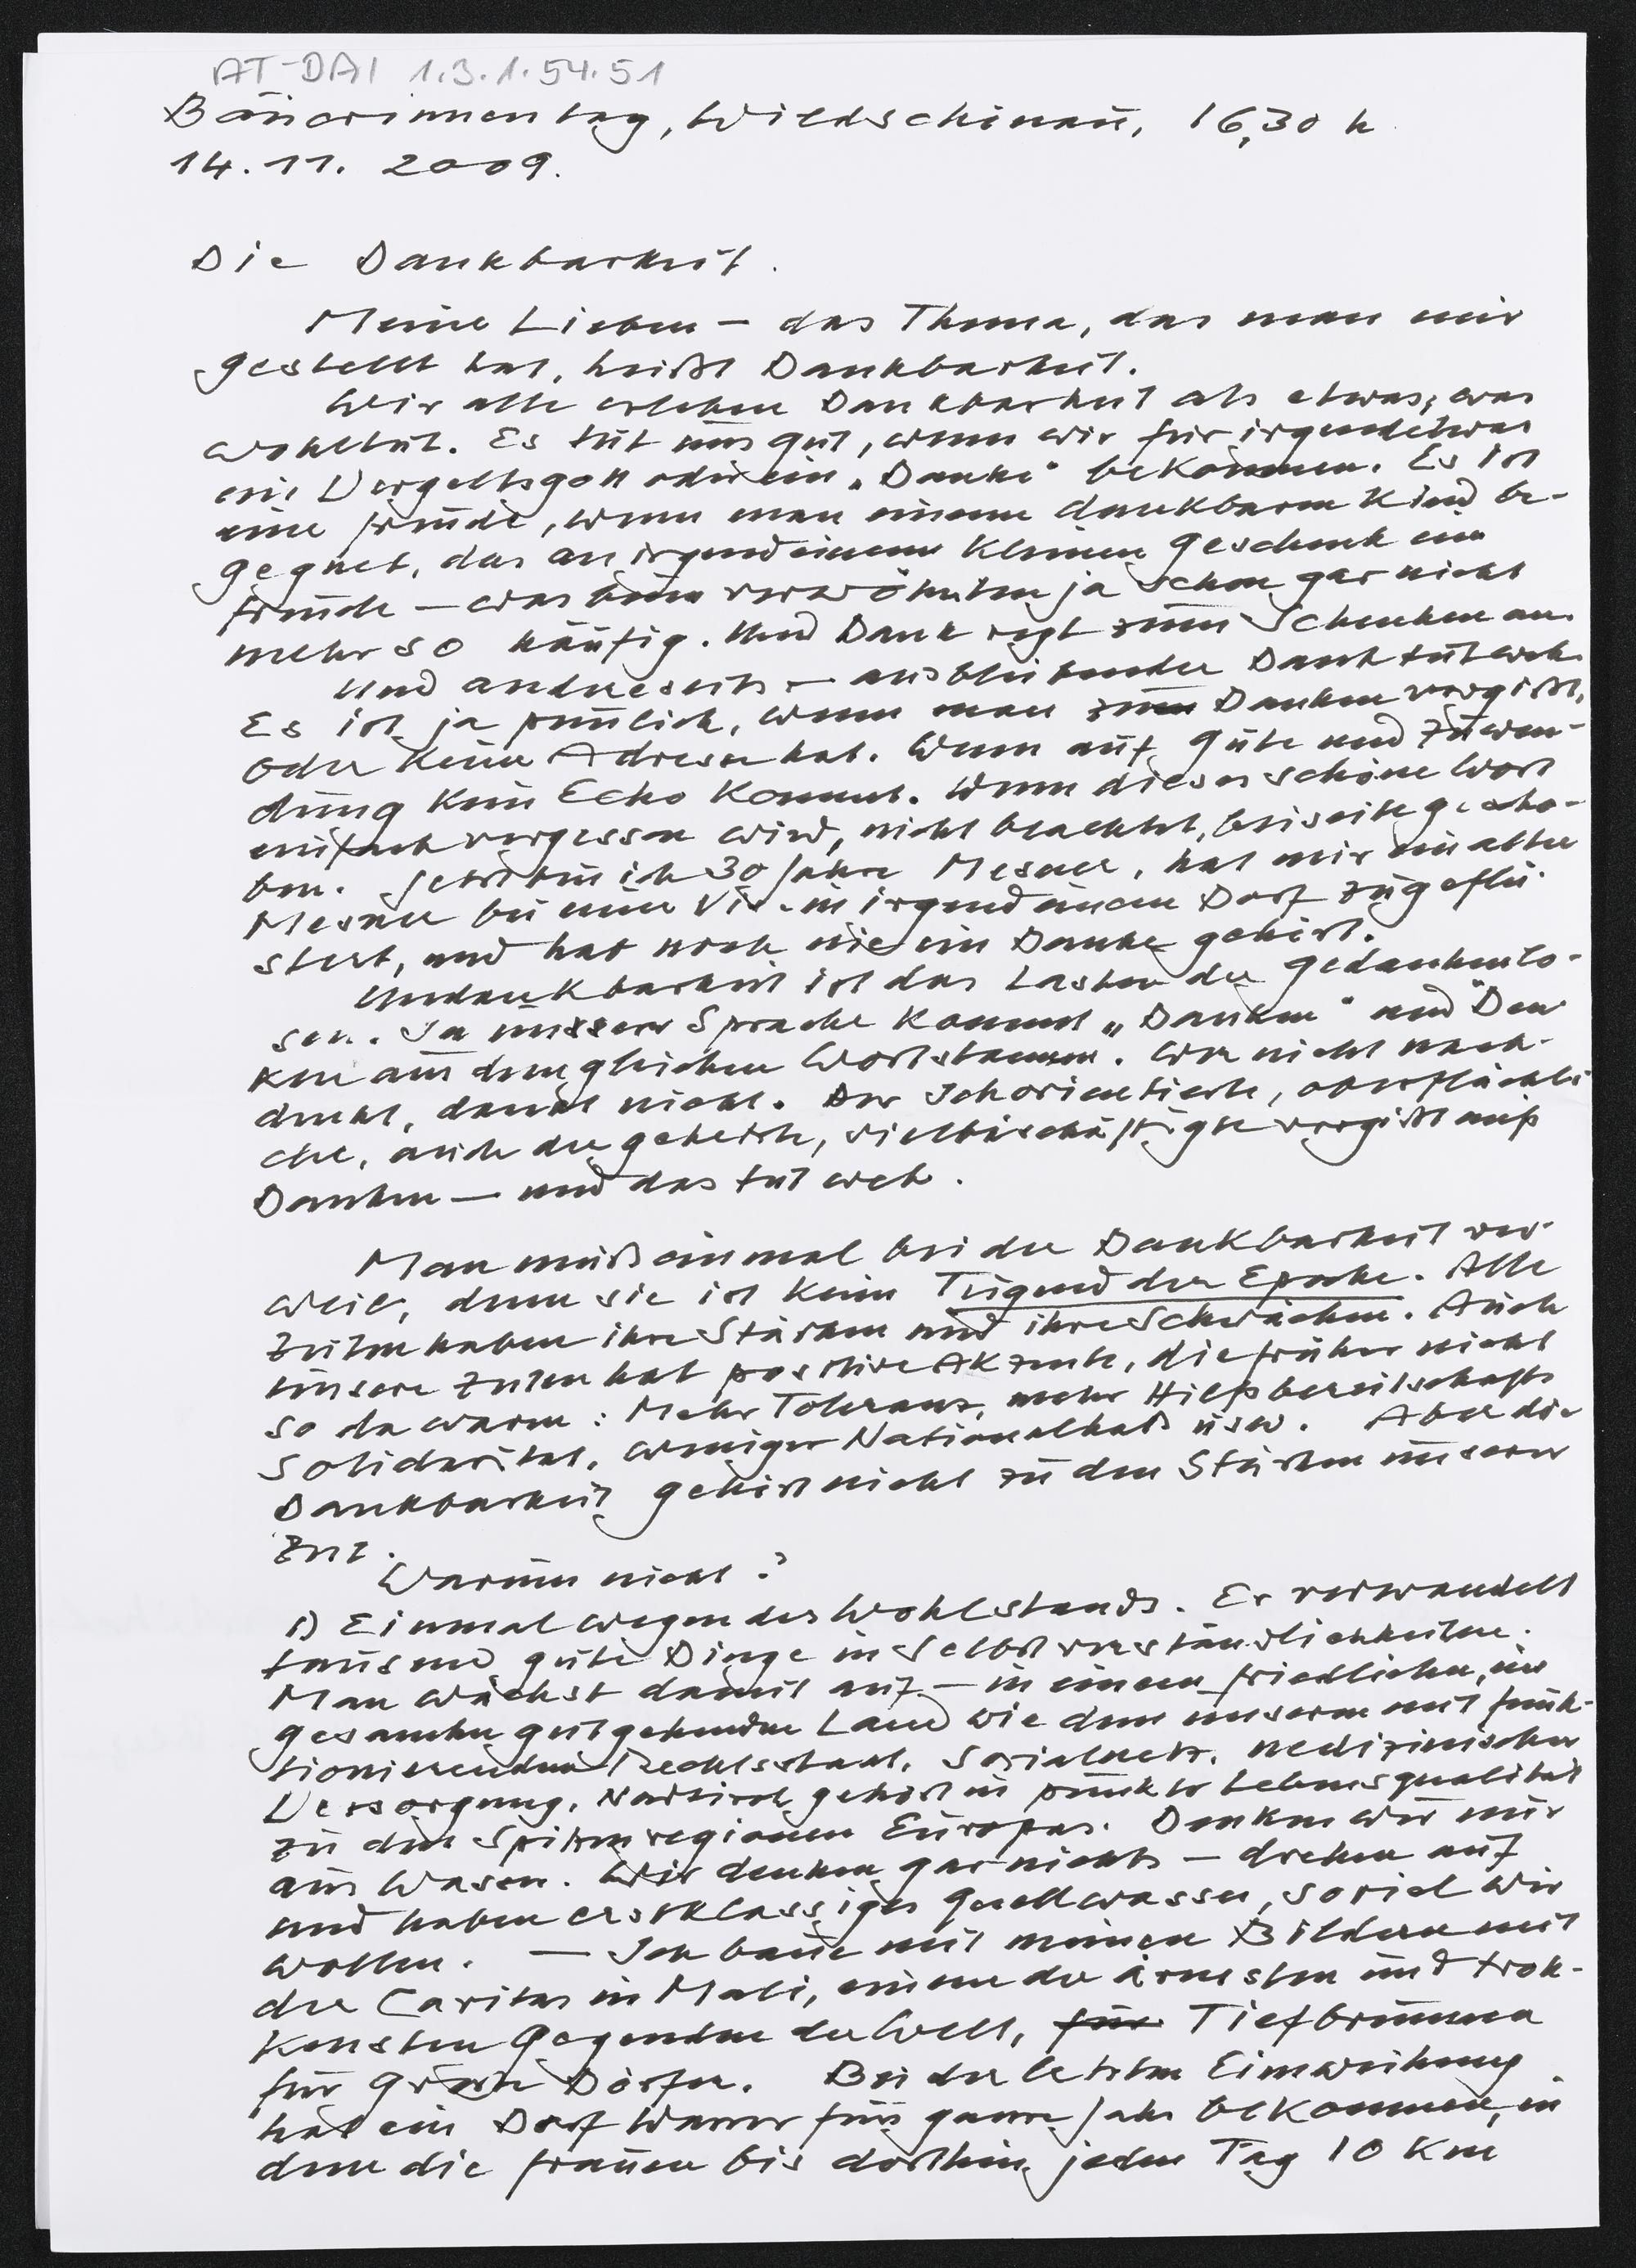 AT-DAI 1.3.1.54.51
Bäuerinnentag, Wildschönau, 16,30 h
14.11. 2009.
Die Dankbarkeit.
Meine Lieben – das Thema, das man mir
gestellt hat, heißt Dankbarkeit.
Wir alle erleben Dankbarkeit als etwas, was
wohltut. Es tut uns gut, wenn wir für irgendetwas
ein Vergeltsgott oder ein „Danke“ bekommen. Es ist
eine Freude, wenn man einem dankbaren Kind be-
gegnet, das an irgendeinem kleinen Geschenk eine
Freude – was beim verwöhnten ja schon gar nicht
mehr so häufig. Und Dank regt zum Schenken an.
Und andrerseits – ausbleibender Dank tut weh.
Es ist ja peinlich, wenn man zum Danken vergißt,
oder keine Adresse hat. Wenn auf Güte und Zuwen-
dung kein Echo kommt. Wenn dieses schöne Wort
einfach vergessen wird, nicht beachtet, beiseite gescho-
ben. Jetzt bin ich 30 Jahre Mesner, hat mir ein alter
Mesner bei einer Vis. in irgendeinem Dorf zugeflü-
stert, und hab noch nie ein Danke gehört.
Undankbarkeit ist das Laster der Gedankenlo-
sen. In unserer Sprache kommt „Danken“ und "Den
ken aus dem gleichen Wortstamm. Wer nicht nach-
denkt, dankt nicht. Der Ichorientierte, oberflächli-
che, auch der gehetzte, vielbeschäftigte vergißt aufs
Danken – und das tut weh.
Man muß einmal bei der Dankbarkeit ver-
weil, denn sie ist keine Tugend der Epoche. Alle
Zeiten haben ihre Stärken und ihre Schwächen. Auch
unsere Zeiten hat positive Akzente, die früher nicht
so da waren: Mehr Toleranz, mehr Hilfsbereitschaft
Solidarität, weniger Nationalhaß usw. Aber die
Dankbarkeit gehört nicht zu den Stärken unserer
Zeit.
Warum nicht?
1) Einmal wegen des Wohlstands. Er verwandelt
tausend gute Dinge in Selbstverständlichkeiten.
Man wächst damit auf – in einem friedlichen, im
gesamten gutgehenden Land wie dem unseren mit funk-
tionierenden Rechtsstaat, Sozialnetz, medizinischer
Versorgung. Nordtirol gehört in punkto Lebensqualität
zu den Spitzenregionen Europas. Denken wir nur
ans Wasser. Wir denken gar nichts – drehen auf
und haben erstklassiges Quellwasser, soviel wir
wollen. – Ich baue mit meinen Bildern mit
der Caritas in Mali, einem der ärmsten und trok-
kensten Gegenden der Welt, für Tiefbrunnen
für größere Dörfer. Bei der letzten Einweihung
hat ein Dorf Wasser fürs ganze Jahr bekommen, in
dem die Frauen bis dorthin jeden Tag 10 Km